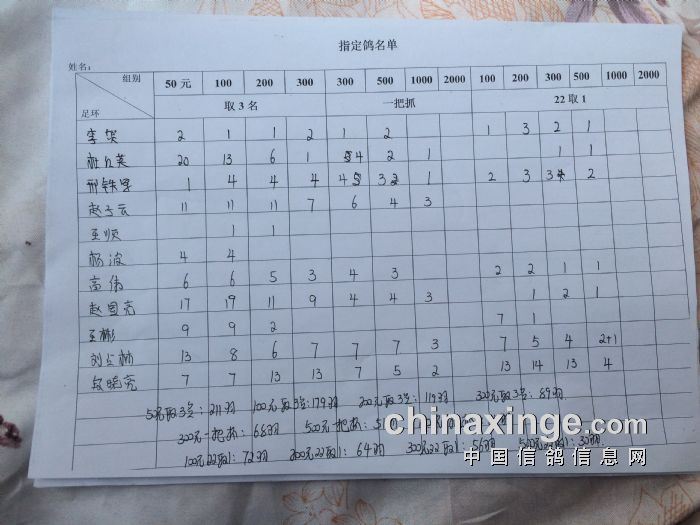 指定鸽名单
姓名：
组别 50元 100 200 300 300 500 1000 2000 100 200 300 500 1000 2000
足环 取3名 一把抓 22取1
李贺 2 1 1 2 1 2 1 3 2 1
20 13 6 1 4 2 1 1 1
1 4 4 4 4 3 1 2 3 2
赵子云 11 11 11 7 6 4 3
王顺 1 1
杨波 4 4
高伟 6 6 5 3 4 3 2 2 1 1
赵国亮 17 19 11 9 4 4 3 1 2 1
王彬 9 9 2 7 1
刘公林 13 8 6 7 7 7 3 7 5 4 2+1
殷晓亮 7 7 13 13 7 5 2 13 14 13 4
50元取3名：211羽 100元取3名：179羽 200元取3名：119羽 300元取3名：89羽
300元一把抓：68羽 500元一把抓：
100元22取1：72羽 200元22取1：64羽 300元22取1：56羽 500元22取1：30羽
chinaxinge.com
中国信鸽信息网